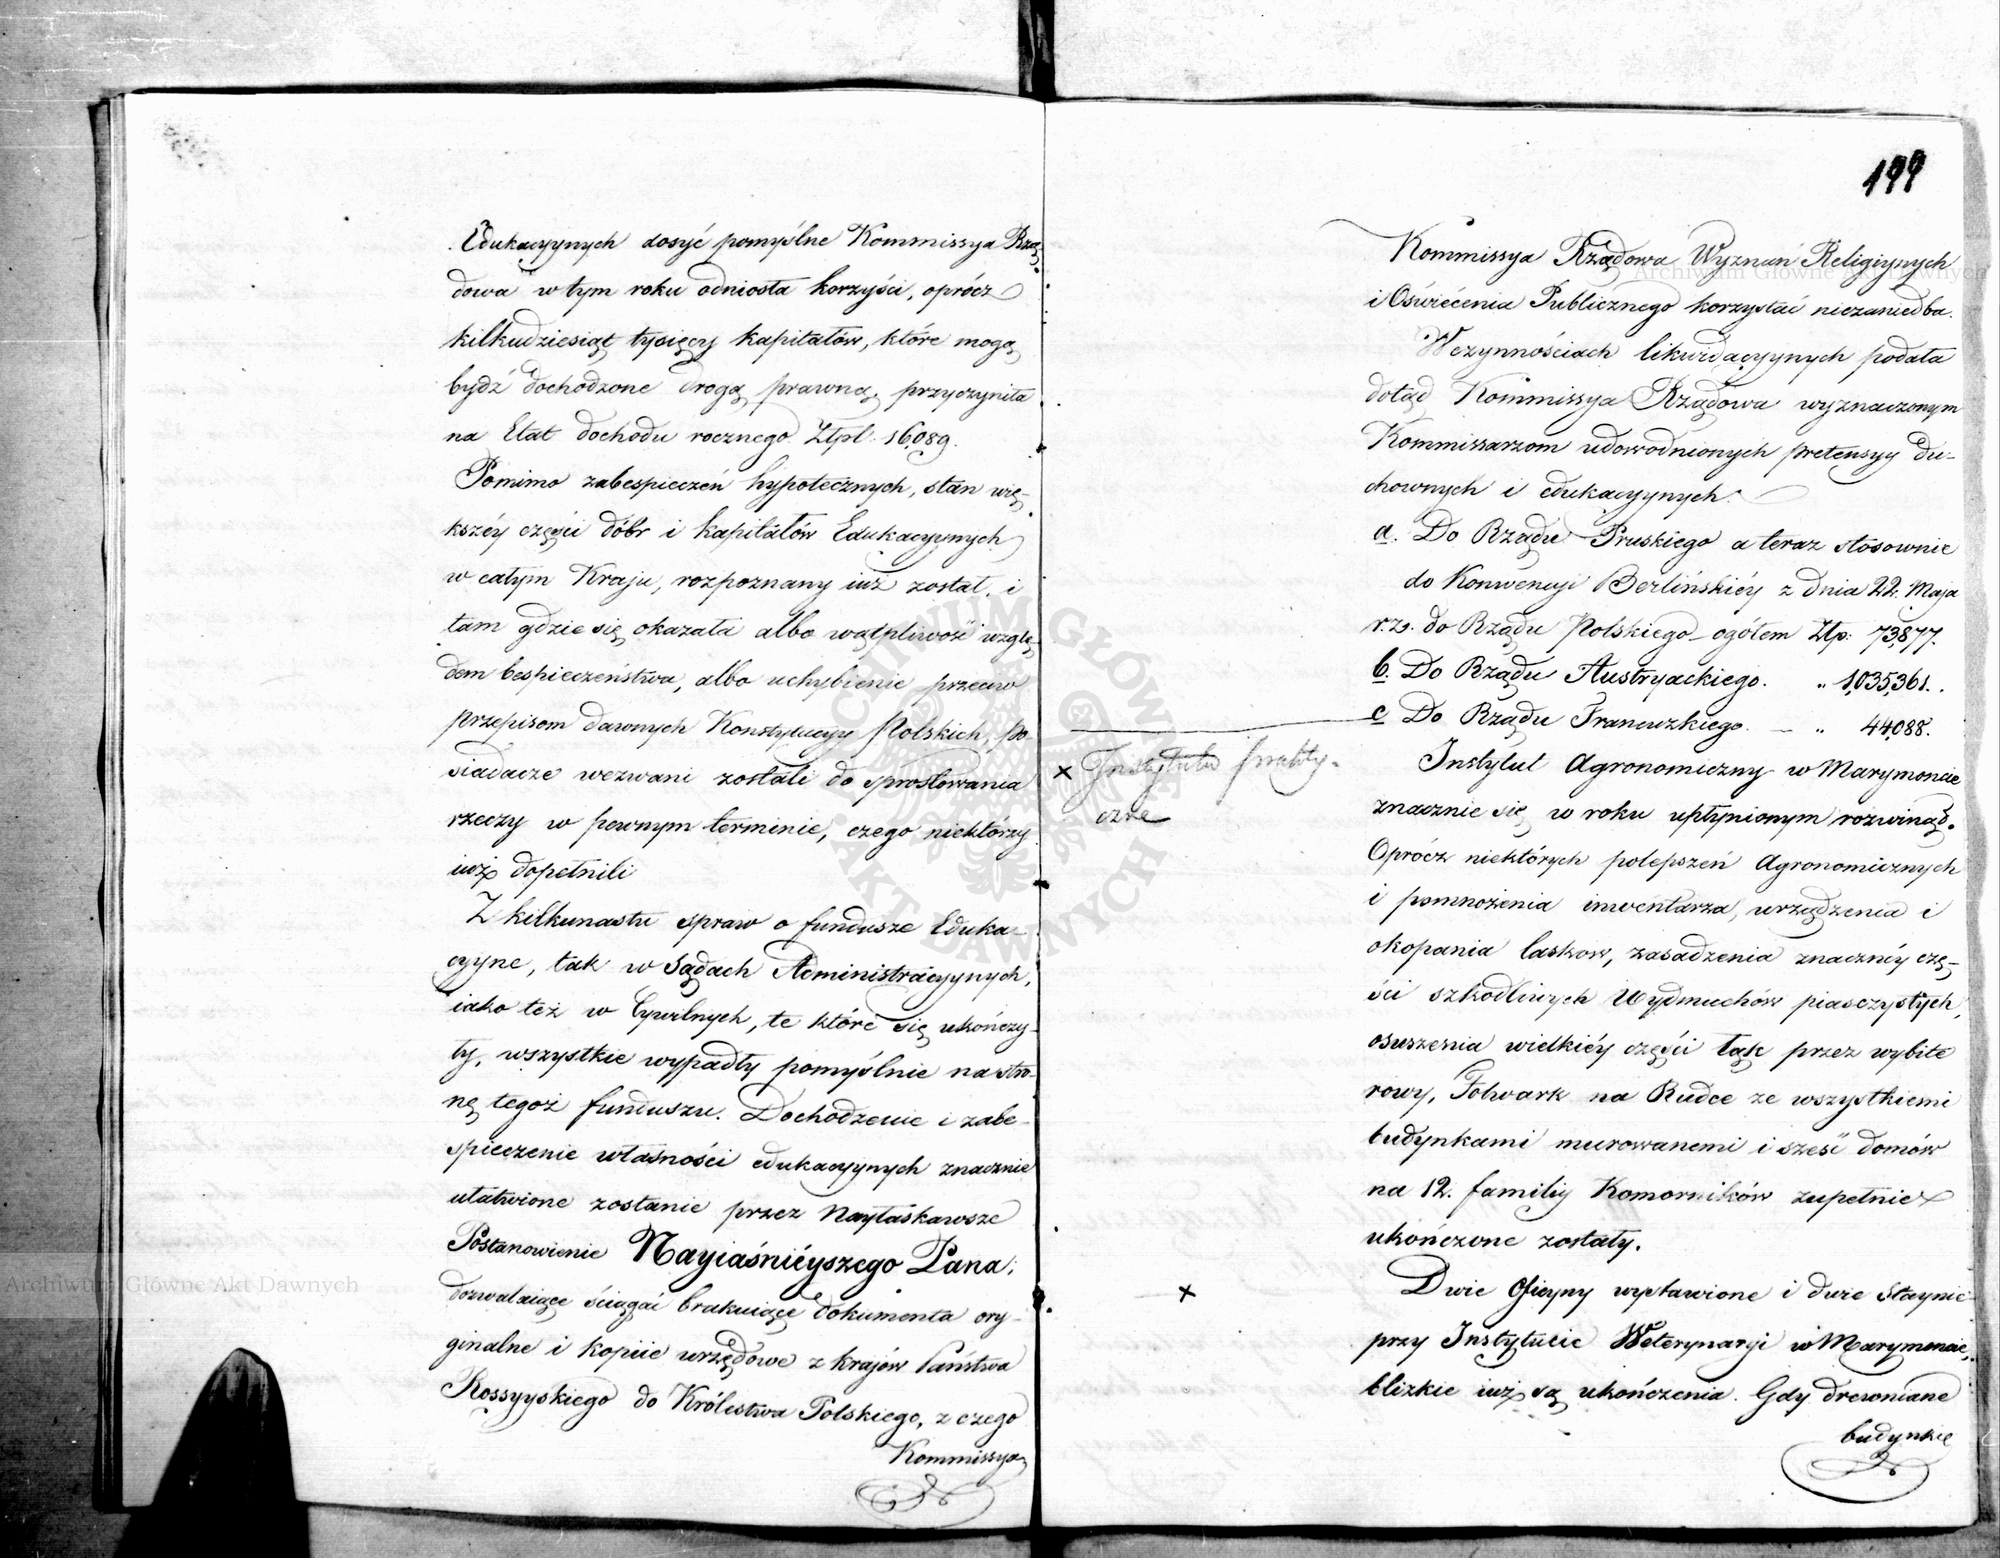 Edukacyynych dosyć pomyślne Kommissya Rzą
dowa w tym roku odniosła korzyści, oprócz
kilkudziesiąt tysięcy kapitałów, które mogą
bydź dochodzone drogą prawną, przyczyniła
na Etat dochodu rocznego Ztpl. 16,089.
Pomimo zabespieczeń hypotecznych, stan wię-
kszéy części dóbr i kapitałów Edukacyynych
w całym Kraju, rozpoznany iuż został, i
tam gdzie się okazała albo wątpliwość wzglę-
dem bespieczeństwa, albo uchybienie przeciw
przepisom dawnych Konstytucyy Polskich, po-
siadacze wezwani zostali do sprostowania
rzeczy w pewnym terminie, czego niektórzy
iuż dopełnili
Z kilkunastu spraw o fundusze Eduka-
cyyne, tak w Sądach Administracyynych,
iako też w Cywilnych, te które się ukończy-
ły, wszystkie wypadły pomyślnie na stro-
nę tegoż funduszu. Dochodzenie i zabe-
spieczenie własności edukacyynych znacznie
ułatwione zostanie przez Nayłaskawsze
Postanowienie Nayiaśniéyszego Pana,
dozwalaiące ściągać brakuiące dokumenta ory-
ginalne i kopiie urzędowe z kraiów Państwa
Rossyyskiego do Królestwa Polskiego, z czego
Kommissya
199
Kommissya Rządowa Wyznań Religiynych
i Oświécenia Publicznego korzystać niezaniedba.
W czynnościach likwidacyynych podała
dotąd Kommissya Rządowa wyznaczonym
Kommissarzom udowodnionych pretensyy du-
chownych i edukacyynych.
a. Do Rządu Pruskiego a teraz stosownie
do Konwencyi Berlińskiéy z dnia 22. Maja
r.z. do Rządu Polskiego ogółem Ztp. 73,877.
b. Do Rządu Austryackiego. " 1,035,361.
c Do Rządu Francuzkiego. — " 44,088.
x Instytuta prakty-
czne
Instytut Agronomiczny w Marymoncie
znacznie się w roku upłynionym rozwinął.
Oprócz niektórych polepszeń Agronomicznych
i pomnożenia inwentarza, urządzenia i
okopania lasków, zasadzenia znacznéy czę-
ści szkodliwych Wydmuchów piasczystych,
osuszenia wielkiéy części łąk przez wybite
rowy, Folwark na Rudce ze wszystkiemi
budynkami murowanemi i sześć domów
na 12. familiy Komorników zupełnie
ukończone zostały.
x Dwie Oficyny wystawione i dwie Staynie
przy Instytucie Weterynaryi w Marymoncie,
x blizkie iuż są ukończenia. Gdy drewniane
budynki
Archiwum Główne Akt Dawnych
Archiwum Główne Akt Dawnych
ARCHIWUM GŁÓWNE AKT DAWNYCH